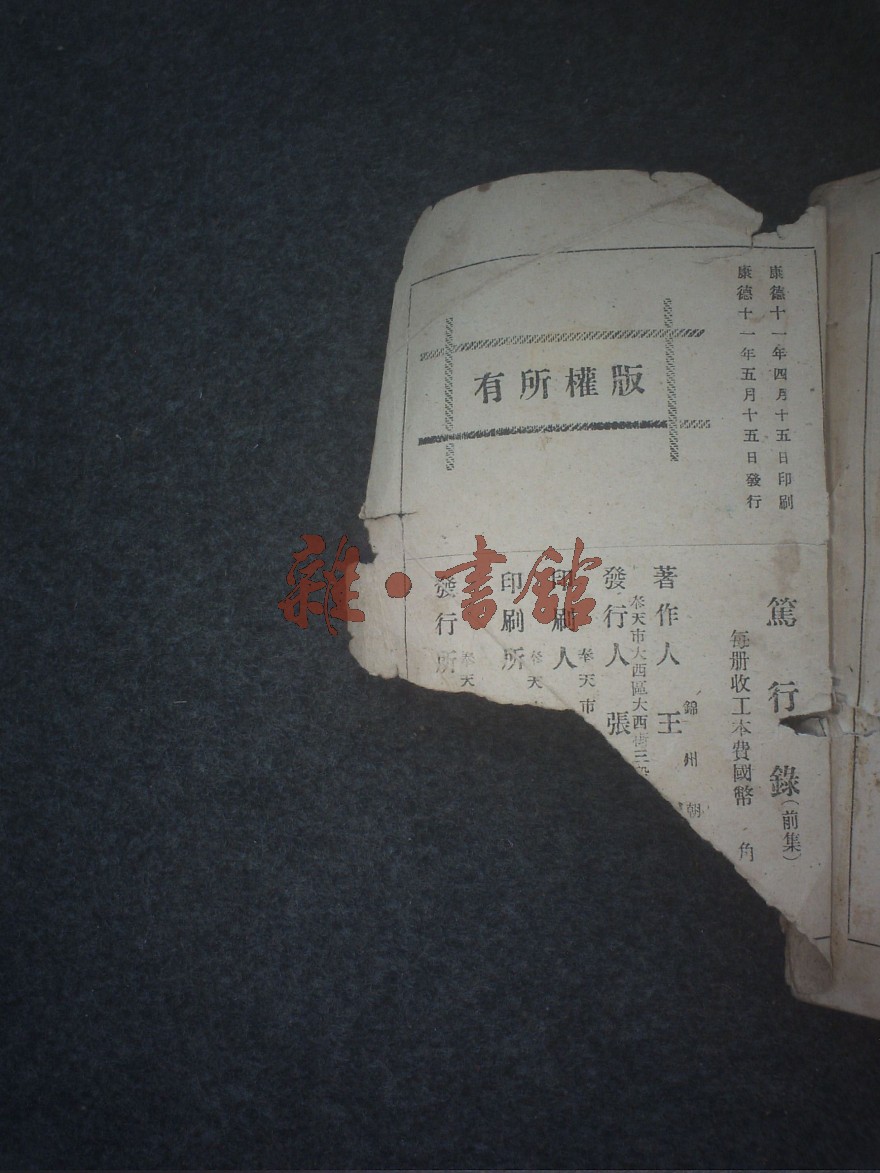 康德十一年四月十五日印刷
康德十一年五月十五日發行
有所權版
篤行錄(前集)
每册收工本費國幣 角
錦州朝
著作人 王
奉天市大西區大西街三段
發行人 張
奉天市
印刷人
奉天
印刷所
奉天
發行所
雜·書館